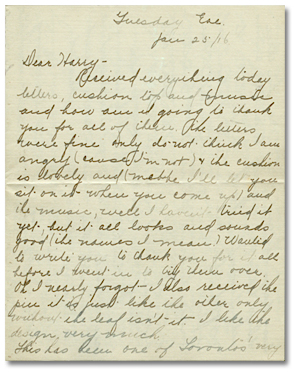 Tuesday Eve.
Jan 25/16
Dear Harry-
Received everything today
letters, cushion top and music
and how am I going to thank
you for all of them. The letters
were fine only do not think I am
angry (cause I'm not) & the cushion
is lovely and (maybe I'll let you
sit on it when you come up) and
the music, well I haven't tried it
yet, but it all looks and sounds
good (the names I mean.) Wanted
to write you to thank you for it all
before I went in to try them over.
Oh I nearly forgot I also received the
pin it is just like the other only
without the leaf isn't it. I like the
design, very much.
This has been one of Toronto's very